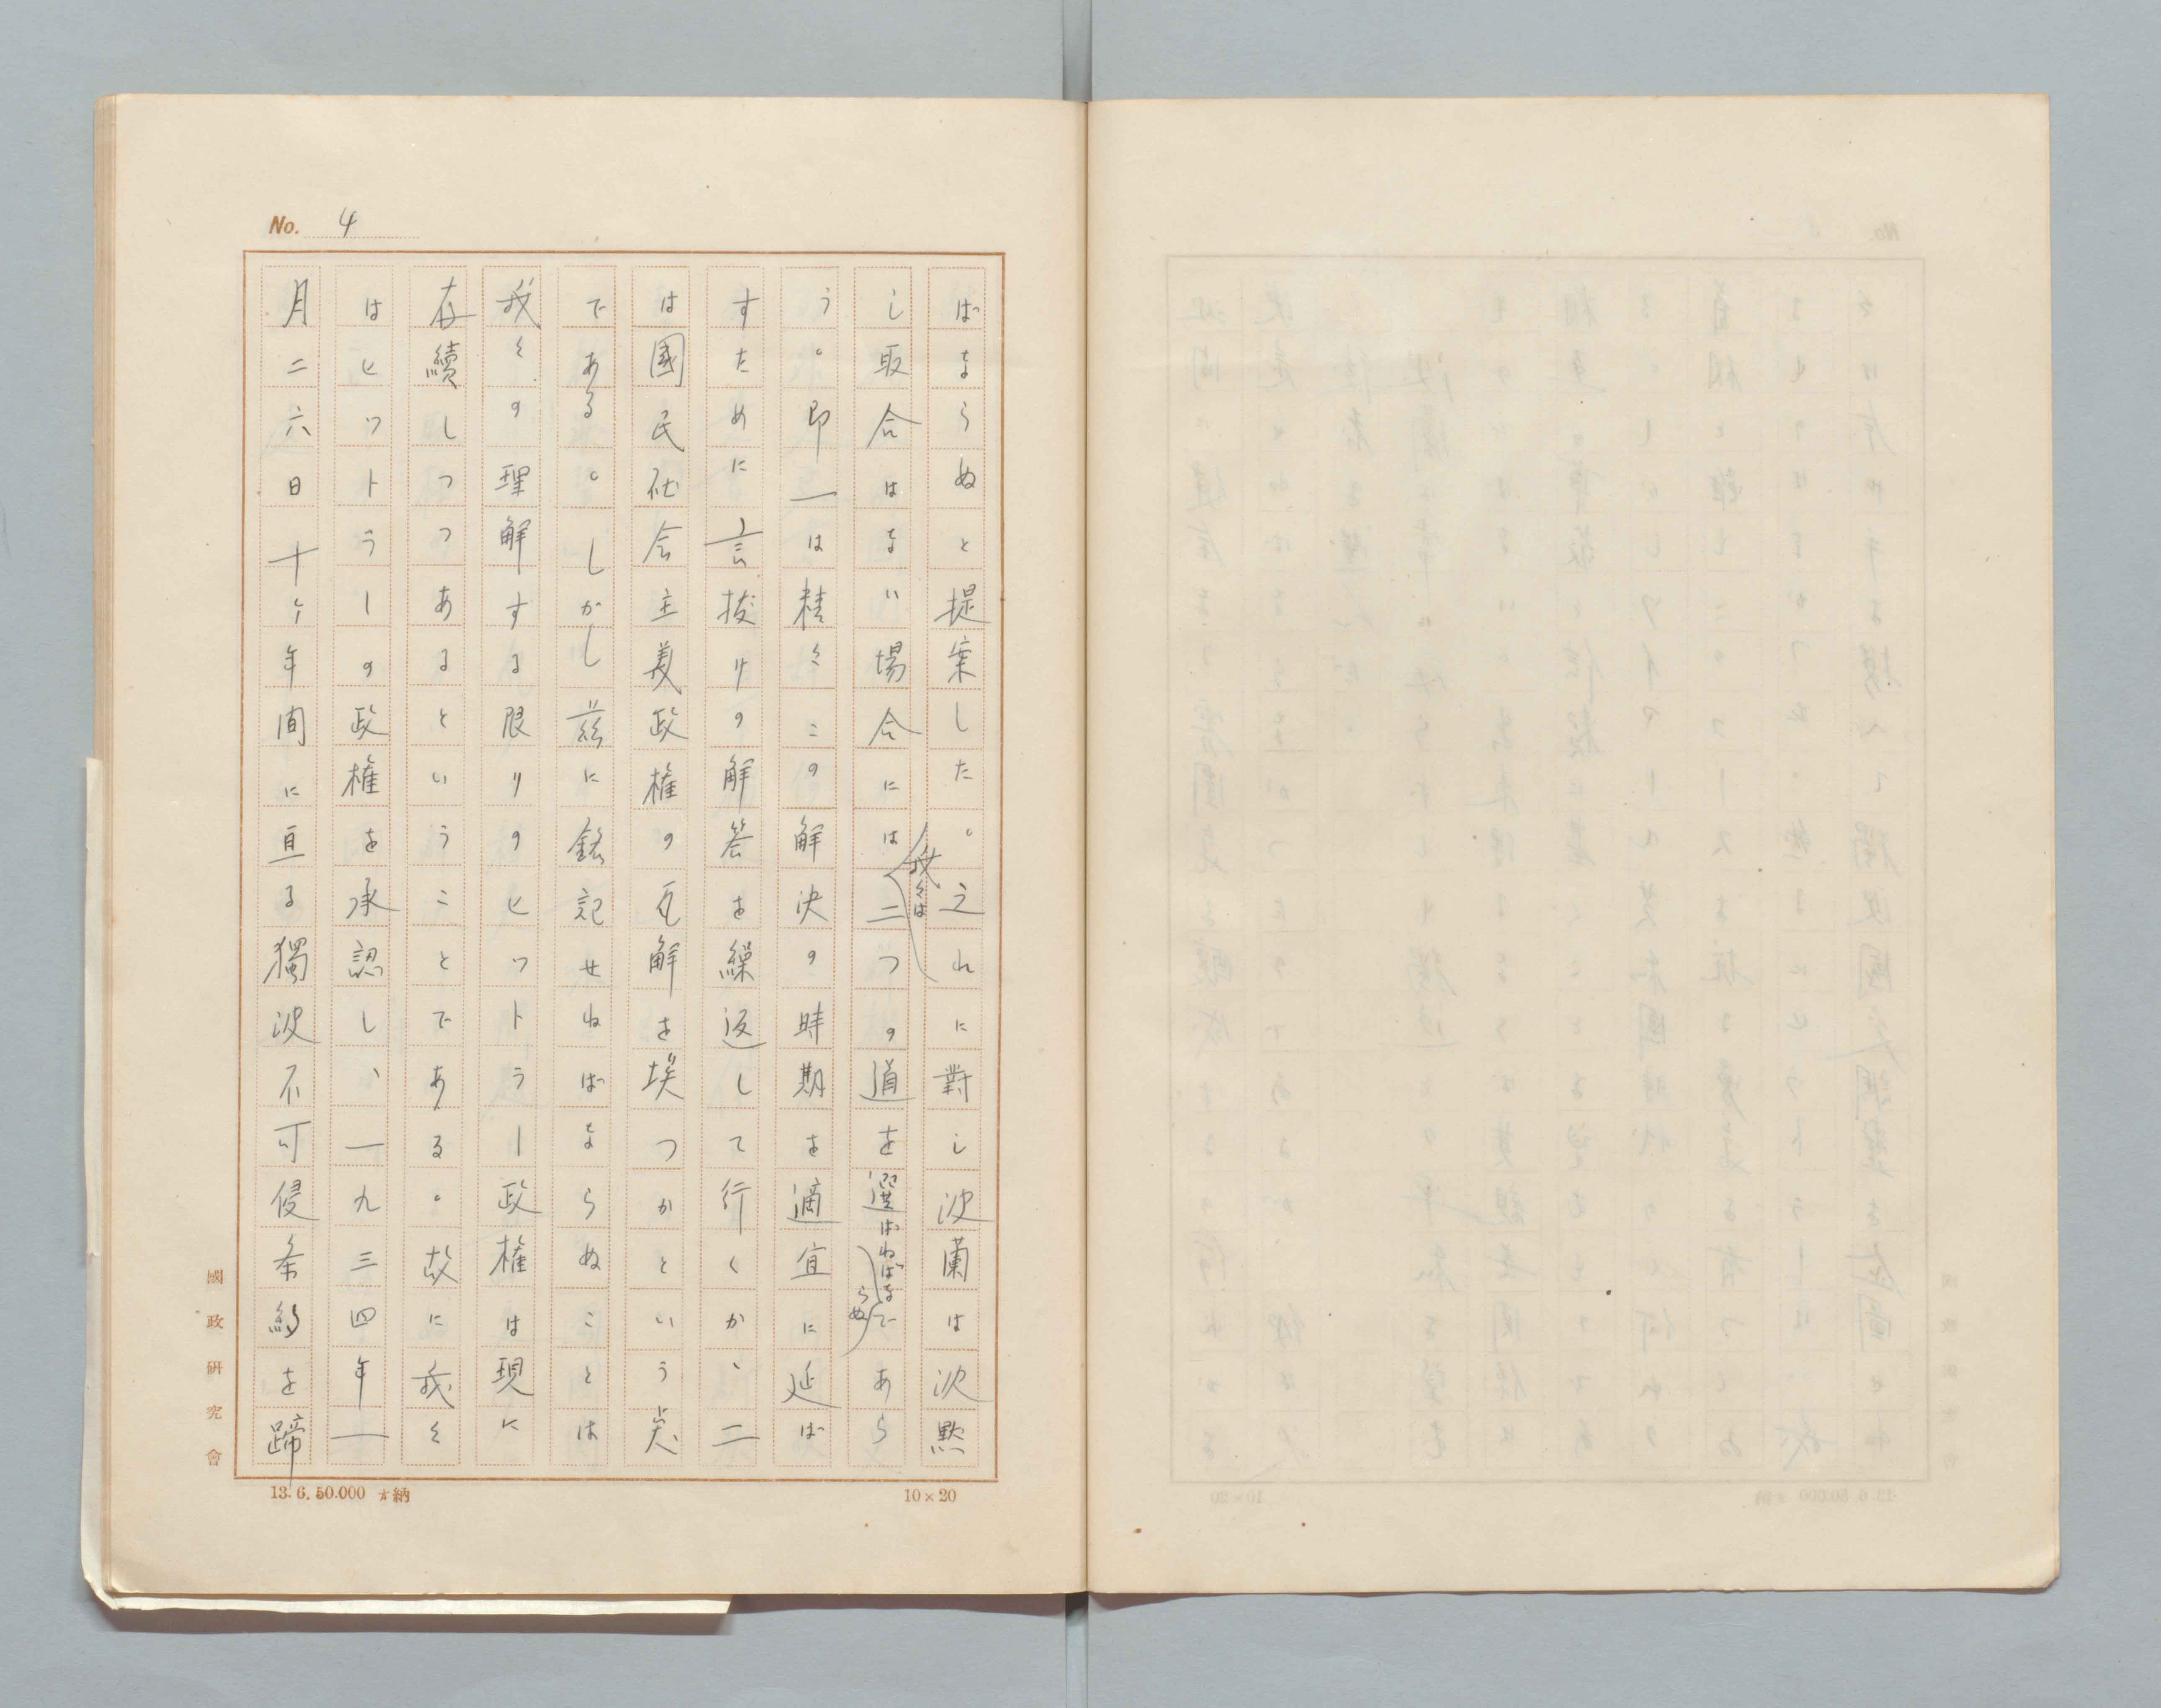 No. 4
ばならぬと提案した。之れに對し波蘭は沈默
し取合はない場合には我々は二つの道を選ばねばならぬであら
う。即一は精々この解決の時期を適宜に延ば
すために言拔けの解答を繰返して行くか、二
は國民社会主義政権の瓦解を埃つかという矣
である。しかし茲に銘記せねばならぬことは
我々の理解する限りのヒットラー政権は現に
存續しつつあるということである。故に我々
はヒットラーの政権を承認し、一九三四年一
月二六日十ヶ年間に亘る獨波不可侵条約を蹄
國政研究會
13.6.50.000 納
10×20